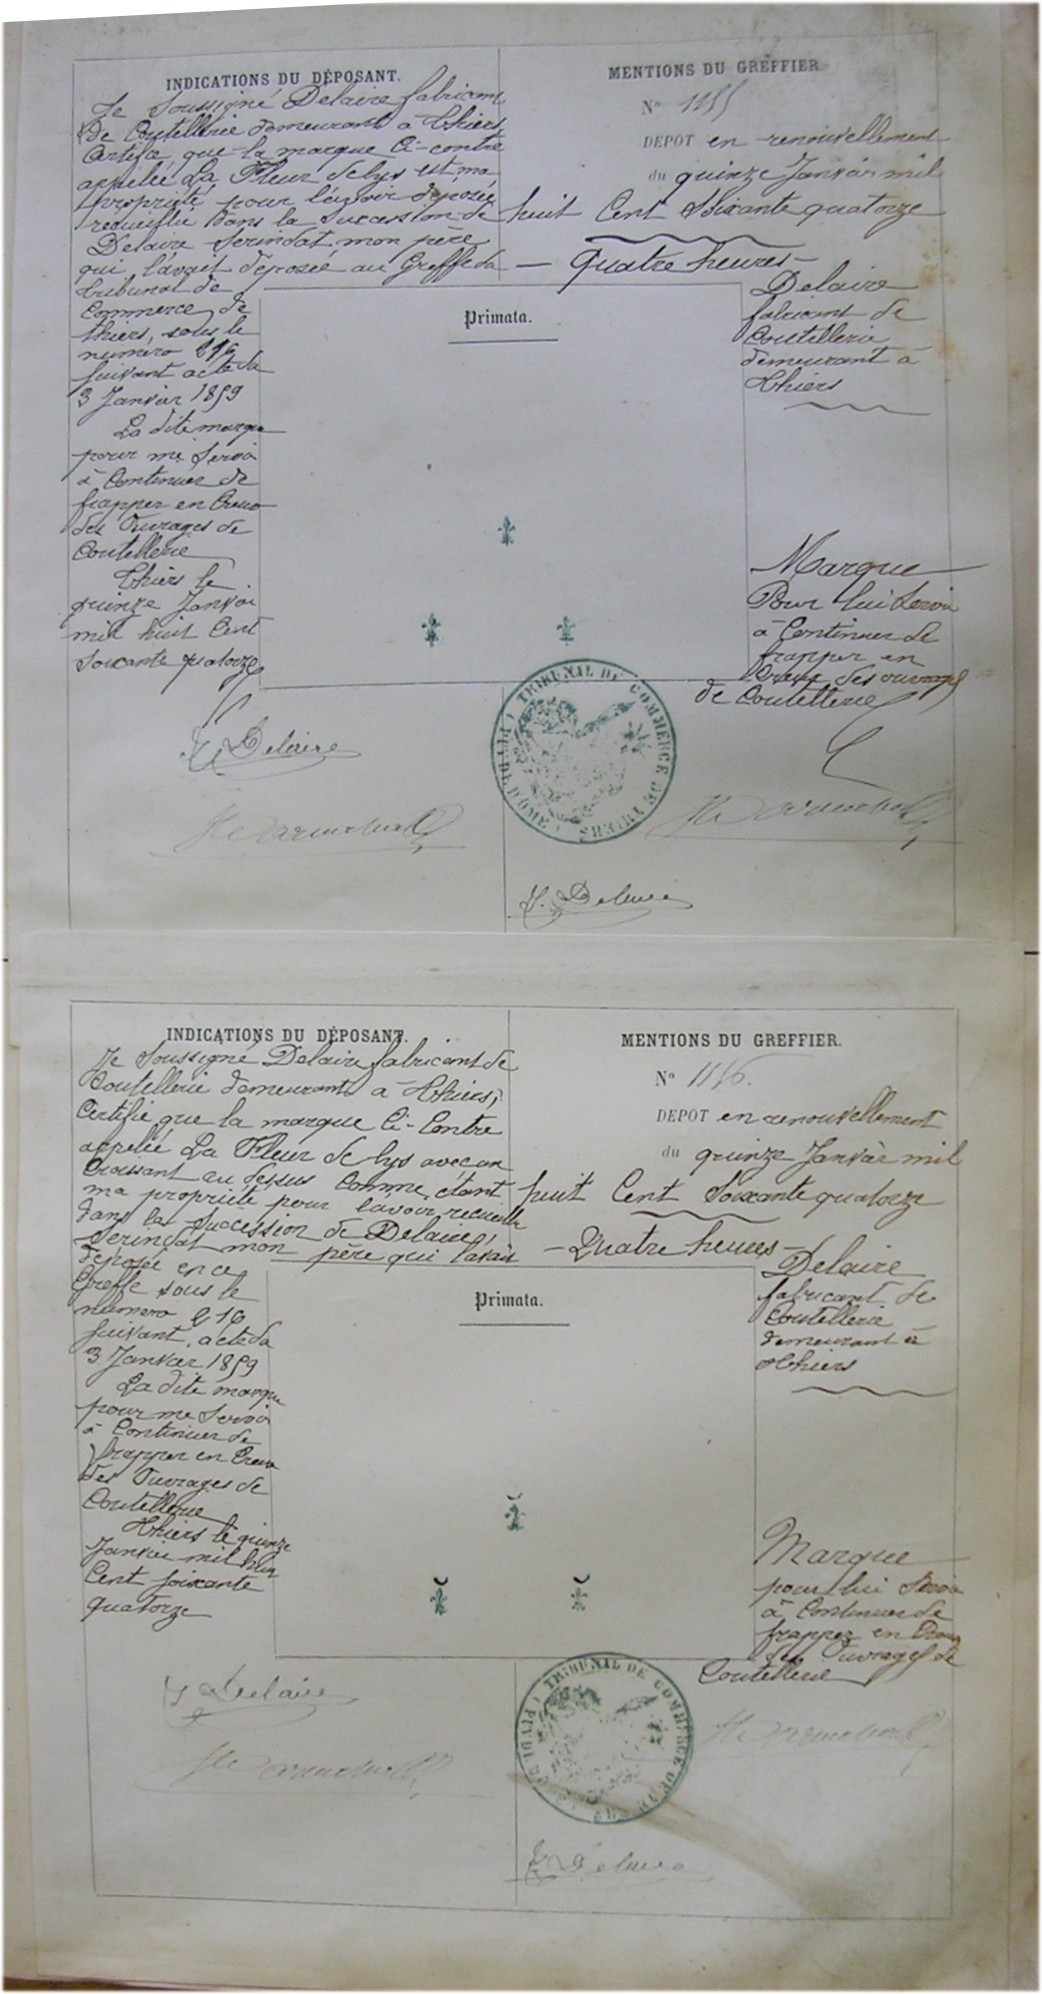 INDICATIONS DU DÉPOSANT.
Je Soussigné Delaire fabricant
de Coutellerie demeurant à Thiers,
Certifie que la marque Ci-contre
appelée La Fleur de lys est ma
propriété pour l'avoir déposée
recueillie dans la Succession de
Delaire Serindat mon père
qui l'avait déposée au Greffe du
tribunal de
Commerce de
thiers, sous le
numéro
suivant acte du
3 Janvier 1859
La dite marque
pour me Servir
à Continuer de
frapper en Creux
des Ouvrages de
Coutellerie
Thiers le
quinze Janvier
mil huit Cent
Soixante quatorze
Delaire
MENTIONS DU GREFFIER.
N° 1155
DEPOT en renouvellement
du quinze Janvier mil
huit Cent Soixante quatorze
— Quatre heures —
Delaire
fabricant de
Coutellerie
demeurant à
Thiers
Primata.
Marque
Pour lui Servir
à Continuer de
frapper en
Creux des ouvrages
de Coutellerie
TRIBUNAL DE COMMERCE DE THIERS (PUY DE DOME)
Delaire
INDICATIONS DU DÉPOSANT.
Je Soussigné Delaire fabricant de
Coutellerie demeurant à Thiers,
Certifie que la marque Ci-Contre
appelée La Fleur de lys avec un
Croissant au dessus Comme étant
ma propriété pour l'avoir recueillie
dans la Succession de Delaire,
Serindat mon père qui l'avait
déposée en ce
Greffe sous le
numéro
suivant acte du
3 Janvier 1859
La dite marque
pour me Servir
à Continuer de
frapper en Creux
des Ouvrages de
Coutellerie
Thiers le quinze
Janvier mil huit
Cent soixante
quatorze
Delaire
MENTIONS DU GREFFIER.
N° 1156.
DEPOT en renouvellement
du quinze Janvier mil
huit Cent Soixante quatorze
— Quatre heures —
Delaire
fabricant de
Coutellerie
demeurant à
Thiers
Primata.
Marque
pour lui Servir
à Continuer de
frapper en Creux
des Ouvrages de
Coutellerie
TRIBUNAL DE COMMERCE DE THIERS (PUY DE DOME)
Delaire